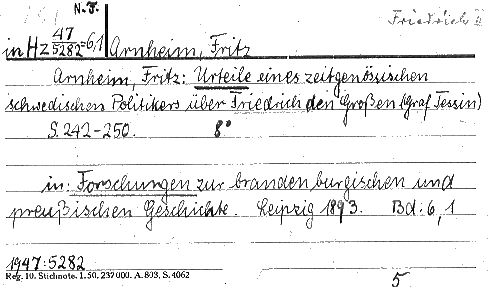 N.F. Friedrich II
in HZ 47/5282=6,1 Arnheim, Fritz
Arnheim, Fritz: Urteile eines zeitgenössischen
schwedischen Politikers über Friedrich den Großen (Graf Tessin)
S. 242-250. 8°
in: Forschungen zur brandenburgischen und
preußischen Geschichte. Leipzig 1893. Bd: 6, 1
1947:5282
Reg. 10. Stichnote. 1. 50. 237 000. A. 803, S. 4062
5